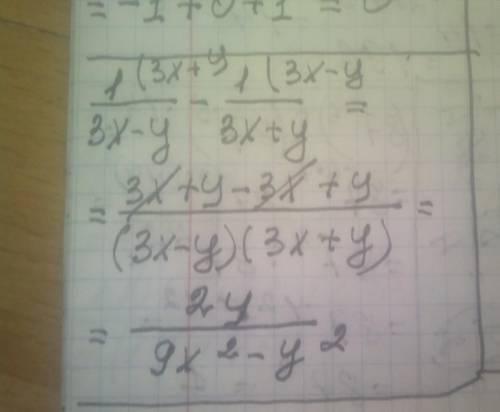 = -1 + 0 + 1 = 0
1 (3x+y) / 3x-y - 1 (3x-y / 3x+y =
= 3x+y-3x+y / (3x-y)(3x+y) =
= 2y / 9x² - y²